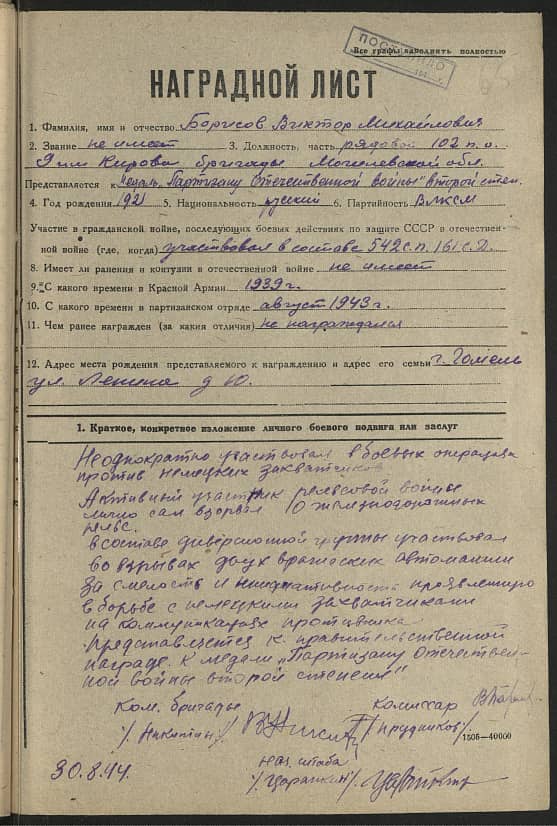 ПОСТУПИЛО
Все графы заполнять полностью
НАГРАДНОЙ ЛИСТ
1. Фамилия, имя и отчество Борисов Виктор Михайлович
2. Звание не имеет 3. Должность, часть рядовой 102 п.о.
9 им Кирова бригады Могилевской обл.
Представляется к "медали Партизану Отечественной войны" второй степ.
4. Год рождения 1921 5. Национальность русский 6. Партийность ВЛКСМ
Участие в гражданской войне, последующих боевых действиях по защите СССР в отечествен-
ной войне (где, когда) участвовал в составе 542 с.п. 161 с.д.
8. Имеет ли ранения и контузии в отечественной войне не имеет
9. С какого времени в Красной Армии 1939 г.
10. С какого времени в партизанском отряде август 1943 г.
11. Чем ранее награжден (за какия отличия) не награждался
12. Адрес места рождения представляемого к награждению и адрес его семьи г. Гомель
ул. Ленина д 10.
1. Краткое, конкретное изложение личного боевого подвига или заслуг
Неоднократно участвовал в боевых операциях
против немецких захватчиков
Активный участник рельсовой войны
лично сам взорвал 10 железнодорожных
рельс.
в составе диверсионной группы участвовал
во взрывах двух вражеских автомашин
за смелость и инициативность проявленную
в борьбе с немецкими захватчиками
на коммуникациях противника
представляется к правительственной
награде к медали "Партизану Отечествен-
ной войны второй степени"
Ком. бригады Комиссар
/Никитин/ /Прудников/
1505—40000
30.8.44. нач. штаба
/Царапкин/